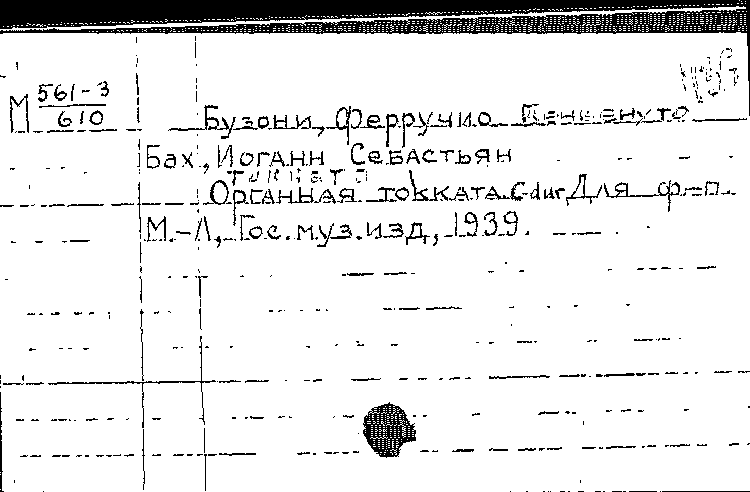 М 561-3
610
Бузони, Ферручио Бенвенуто
Бах, Иоганн Себастьян
Токката
Органная токката C-dur. Для ф-п.
М.-Л, Гос. муз. изд, 1939.